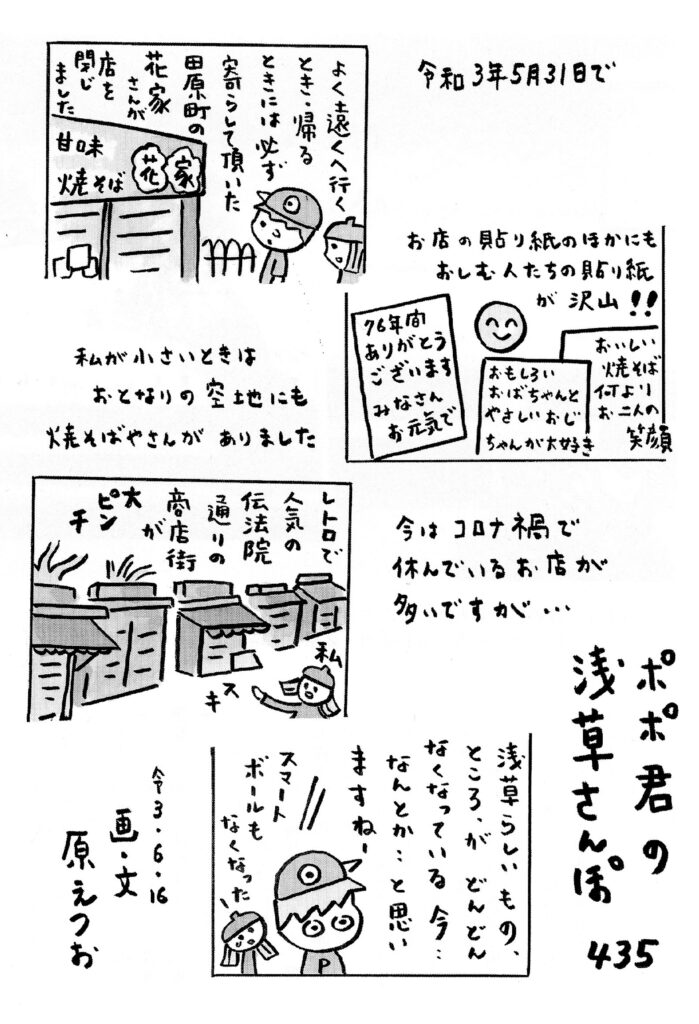 ポポ君の
浅草さんぽ
435
令和3年5月31日で
よく遠くへ行く
とき・帰る
ときには必ず
寄らして頂いた
田原町の
花家
さんが
店を
閉じ
ました
甘味
焼そば
花家
お店の貼り紙のほかにも
おしむ人たちの貼り紙
が沢山!!
76年間
ありがとう
ございます
みなさん
お元気で
おもしろい
おばちゃんと
やさしいおじ
ちゃんが大好き
おいしい
焼そば
何より
お二人の
笑顔
私が小さいときは
おとなりの空地にも
焼そばやさんがありました
レトロで
人気の
伝法院
通りの
商店街
が
大
ピン
チ
私
スキ
今はコロナ禍で
休んでいるお店が
多いですが…
浅草らしいもの、
ところ、が どんどん
なくなっている今…
なんとか…と思い
ますねー
スマート
ボールも
なくなった
P
令3.6.16
画・文
原えつお